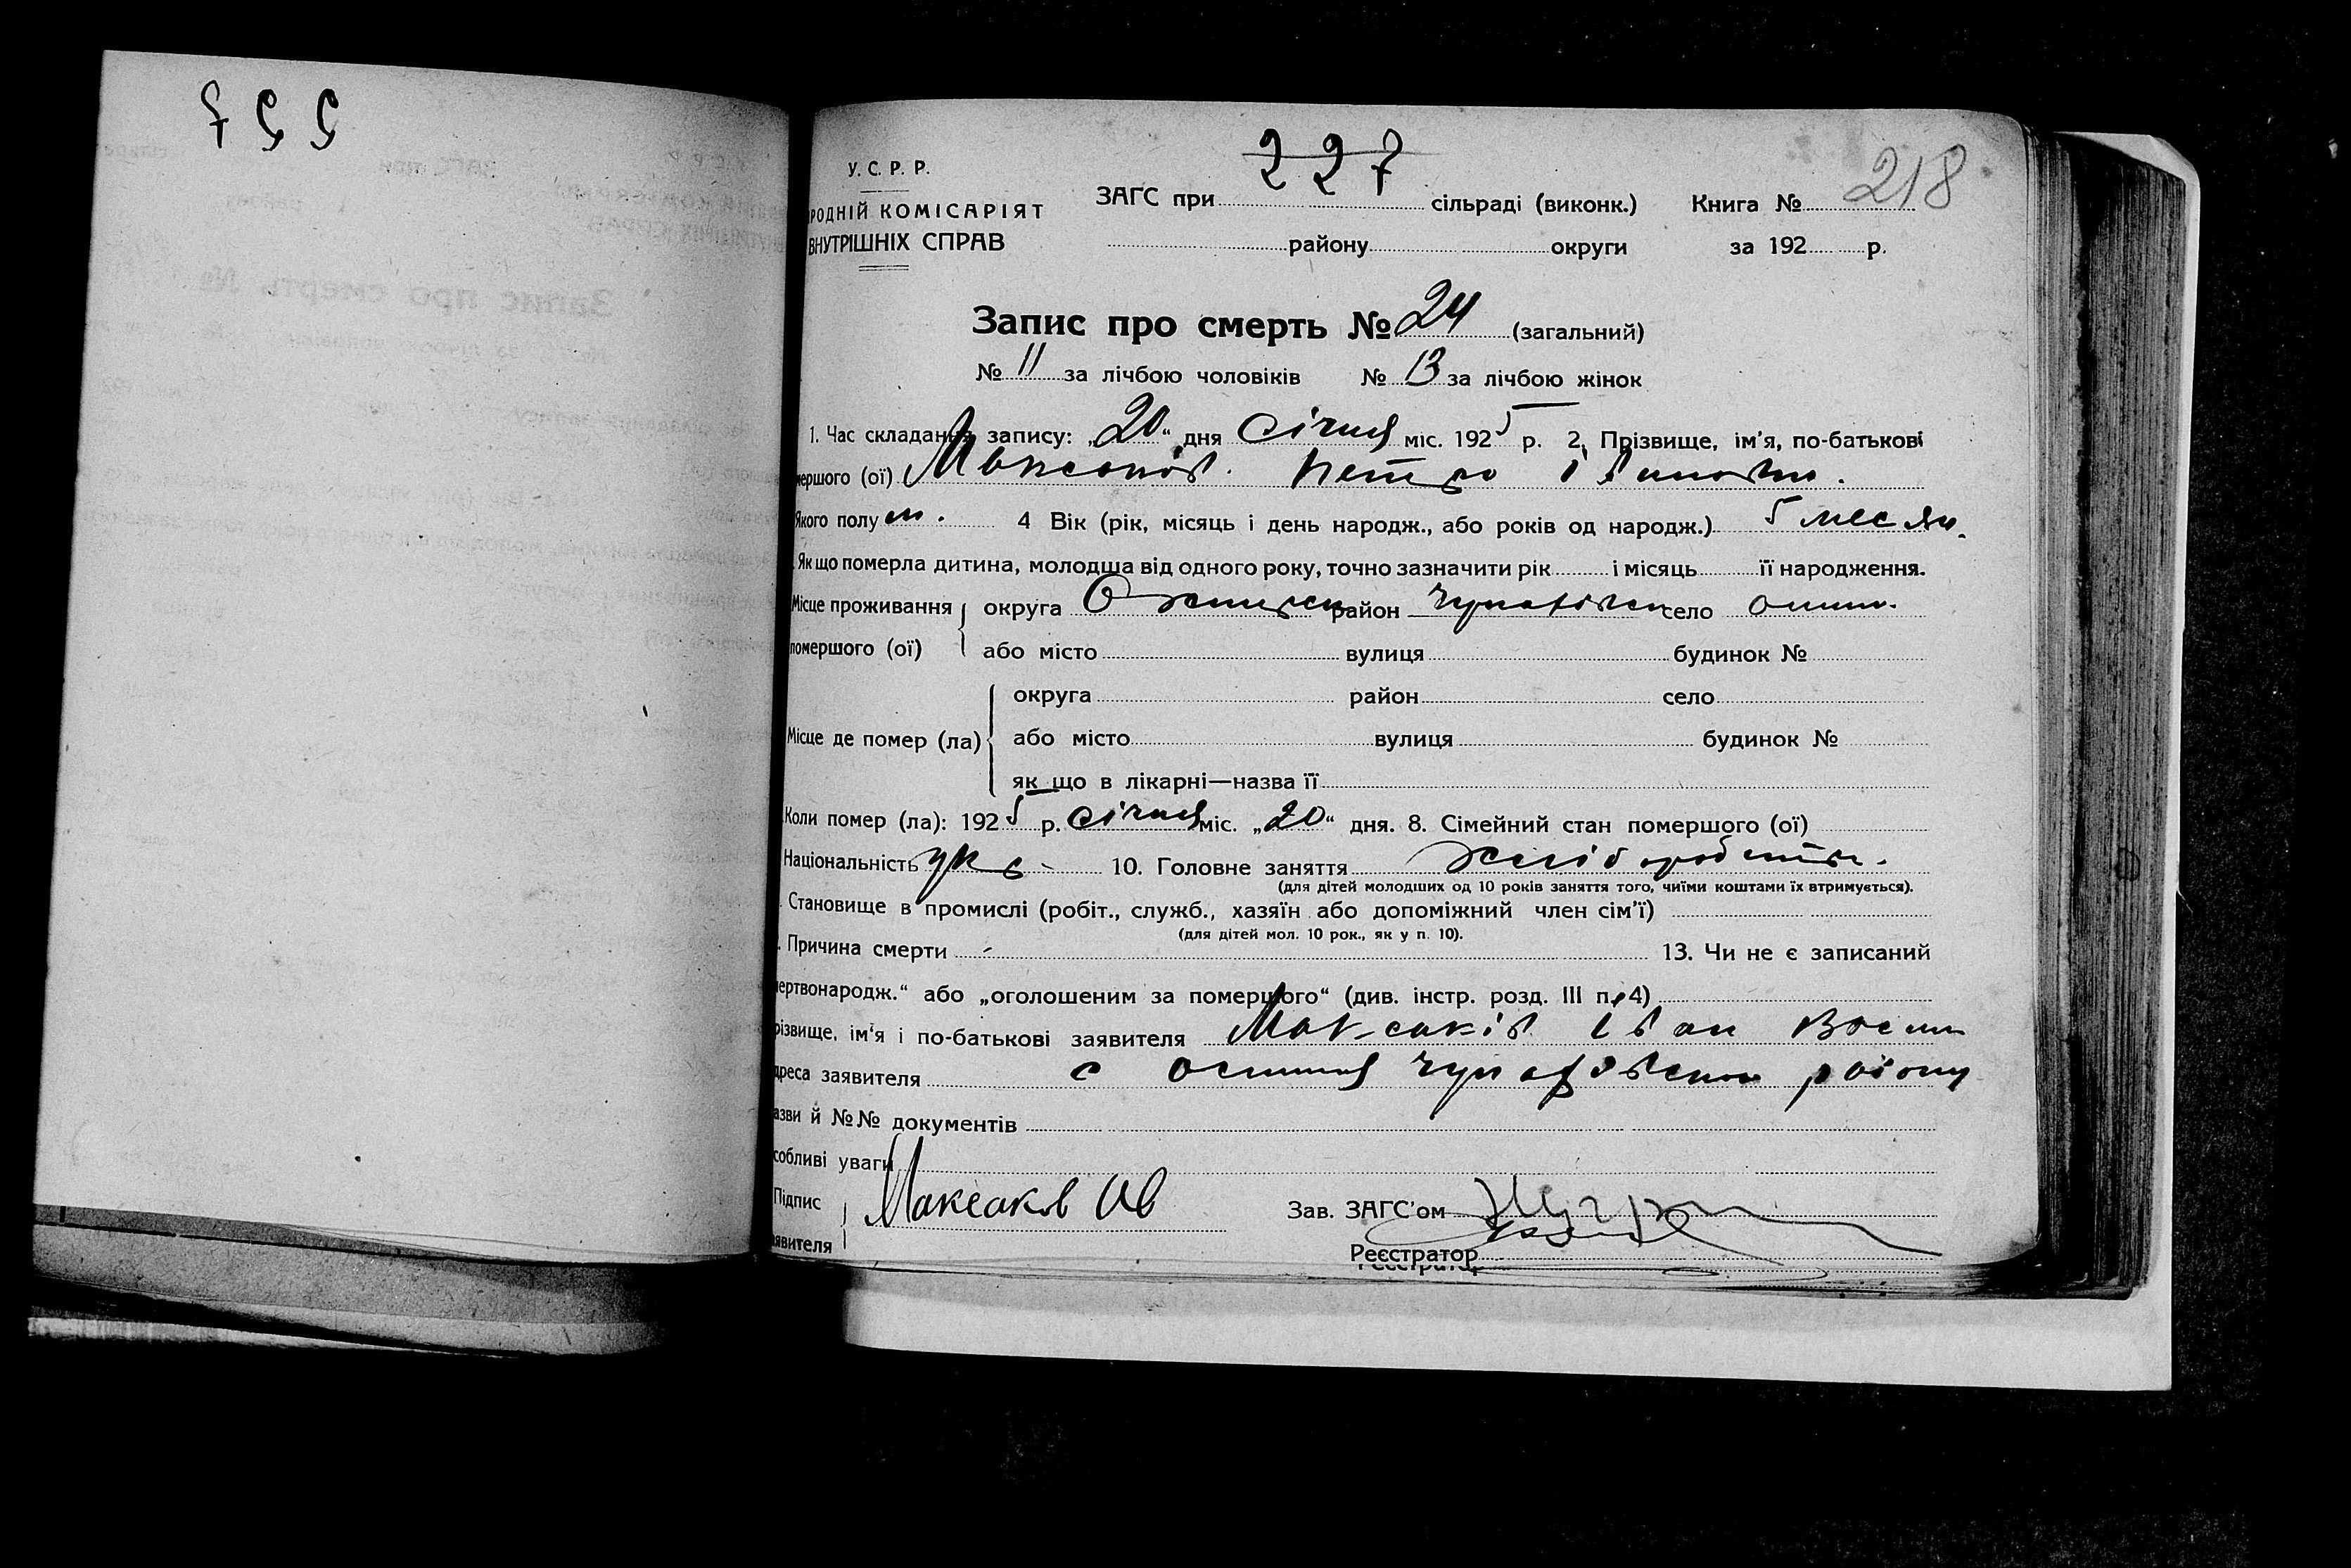 227
У. С. Р. Р.
РОДНІЙ КОМІСАРІЯТ
ВНУТРІШНІХ СПРАВ
ЗАГС при 227 сільраді (виконк.) Книга № 218
району округи за 192 р.
Запис про смерть № 24 (загальний)
№ 11 за лічбою чоловіків № 13 за лічбою жінок
1. Час складання запису: „20“ дня Січня міс. 1925 р. 2. Прізвище, ім'я, по-батькові
мершого (ої) Максаків Петро Іванович.
Якого полу м. 4 Вік (рік, місяць і день народж., або років од народж.) 5 месяц.
Як що померла дитина, молодша від одного року, точно зазначити рік і місяць її народження.
Місце проживання округа район село
померщого (ої) або місто вулиця будинок №
округа район село
Місце де помер (ла) або місто вулиця будинок №
як що в лікарні—назва її
Коли помер (ла): 1925 р. Січня міс. „20“ дня. 8. Сімейний стан померщого (ої)
Національність укр 10. Головне заняття хлібороб
(для дітей молодших од 10 років заняття того, чиїми коштами їх втримується).
Становище в промислі (робіт., служб., хазяїн або допоміжний член сім'ї)
(для дітей мол. 10 рок., як у п. 10).
Причина смерти 13. Чи не є записаний
ертвонародж.“ або „оголошеним за померщого“ (див. інстр. розд. III п. 4)
різвище, ім'я і по-батькові заявителя Максаків Іван
дреса заявителя с району
азви й №№ документів
собливі уваги
Підпис
аявителя
Максаков Ив
Зав. ЗАГС'ом
Реєстратор